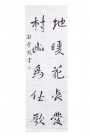 地暖花長發
村幽鳥任歌